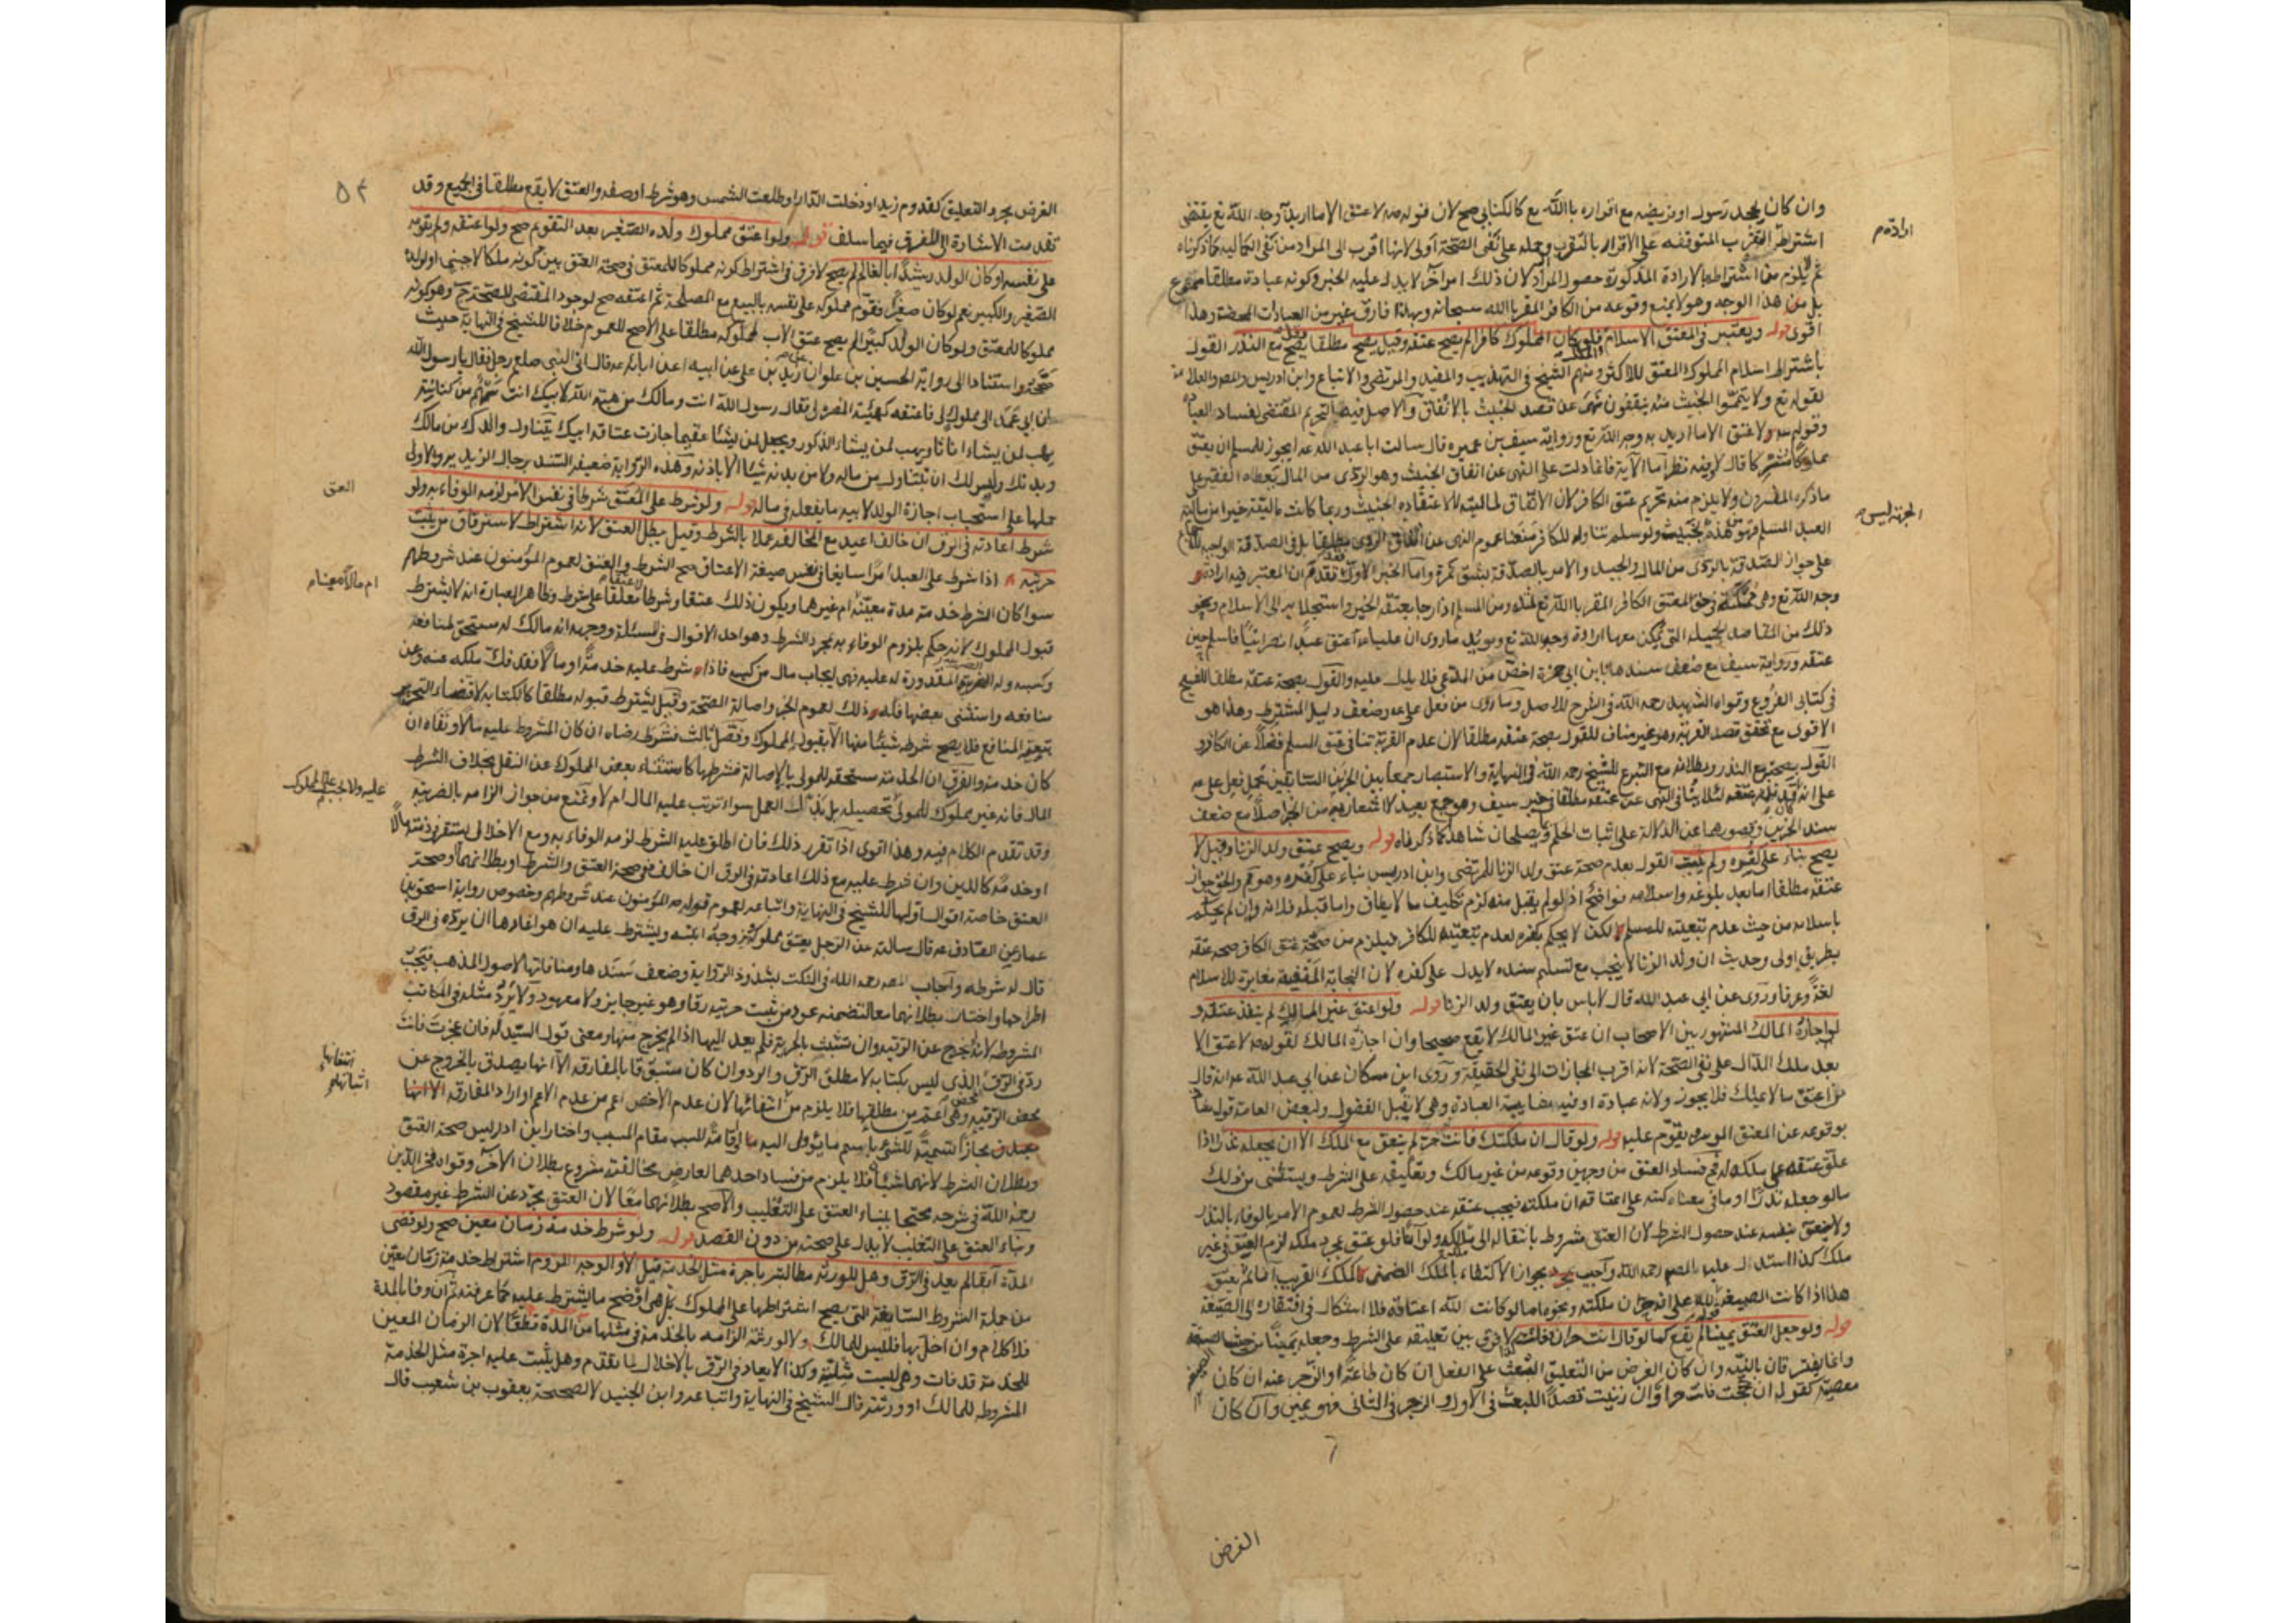 وان كان يجحد رسول او فريضه مع اقراره بالله تع كالكتابي صح لان قوله صه لا عتق الا ما اريد به وجه الله تع يقتضي
ارادة م
اشتراط التقرب المتوقفه على الاقرار بالمتقرب وحمله على نفى الصحة اولى لانها اقرب الى المراد من نفى الكماليه كما ذكرناه
ثم يلزم من اشتراطه بالارادة المذكورة حصول المراد لان ذلك امر آخر لا يدل عليه الخبر وكونه عبادة مطلقا ممنوع
بل من هذا الوجه وهو لا يمنع وقوعه من الكافر المقر بالله سبحانه وبهذا فارق غيره من العبادات المحضة وهذا
اقوى قوله ويعتبر في المعتق الاسلام فلو كان المملوك كافرا لم يصح عتقه وقيل يصح مطلقا وقيل يصح مع النذر القول
باشتراط اسلام المملوك المعتق للاكثر ومنهم الشيخ في التهذيب والمفيد والمرتضى والاتباع وابن ادريس والمصر والعلامة
لقوله تع ولا تيمموا الخبيث منه ينفقون نهى عن قصد الخبيث بالانفاق والاصل فيه التحريم المقتضى لفساد العبادة
وقوله صه لا عتق الا ما اريد به وجه الله تع ورواية سيف بن عميره قال سالت ابا عبد الله عه ايجوز للمسلم ان يعتق
مملوكا مشركا قال لا وفيه نظر اما الآية فانما دلت على النهى عن انفاق الخبيث وهو الردى من المال يعطاه الفقير على
ماذكره المفسرون ولا يلزم منه تحريم عتق الكافر لان الانفاق لماليته لا لاعتقاده الخبيث وربما كانت ماليته خيرا من مالية
الجهة ليس
العبد المسلم فهو من هذه بخبيث ولو سلم تناوله للكافر منعنا عموم النهى عن انفاق الردى مطلقا بل في الصدقة الواجبة
على جواز الصدقة بالردى من المال والجيد والامر بالصدقة بشق تمرة واما الخبر الاول فقد تقدم ان المعتبر فيه ارادة
وجه الله تع وهى ممكنة في حق المعتق الكافر المقر بالله تع لمثله ومن المسلم اذا رجا بعتقه الخير واستجلابه الى الاسلام ونحو
ذلك من المقاصد الجميلة التي يمكن معها ارادة وجه الله تع ويويد ماروى ان عليا عه اعتق عبدا نصرانيا فاسلم حين
عتقه ورواية سيف مع ضعف سندها بابن ابي حمزة اخص من المدعى فلا يدل عليه والقول بصحة عتقه مطلقا للشيخ
في كتابي الفروع وقواه الشهيد رحمه الله في الشرح للاصل وما روى من فعل على عه وضعف دليل المشترط وهذا هو
الاقوى مع تحقق قصد القربة وهو غير مناف للقول بصحة عتقه مطلقا لان عدم القربة تنافى عتق المسلم فضلا عن الكافر و
القول بصحته مع النذر وبطلانه مع التبرع للشيخ رحمه الله في النهاية والاستبصار جمعا بين الخبرين السابقين بحمل فعل على عه
على انه كان قد نذر عتقه لئلا ينافى النهى عن عتقه مطلقا في خبر سيف وهو جمع بعيد لا اشعار به من الخبر اصلا مع ضعف
سند الخبرين وقصورهما عن الدلالة على اثبات الحكم ويصلحان شاهدا كما ذكرناه قوله ويصح عتق ولد الزنا وقيل لا
يصح بناء على كفره ولم يثبت القول بعدم صحة عتق ولد الزنا للمرتضى وابن ادريس بناء على كفره وهو مم والحق جواز
عتقه مطلقا اما بعد بلوغه واسلامه فواضح اذ لو لم يقبل منه لزم تكليف ما لا يطاق واما قبله فلانه وان لم يحكم
باسلامه من حيث عدم تبعيته للمسلم لكن لا يحكم بكفره لعدم تبعيته للكافر فيلزم من صحة عتق الكافر صحة عتقه
بطريق اولى وحديث ان ولد الزنا لا ينجب مع تسليم سنده لا يدل على كفره لان النجابة المنفية مغايرة للاسلام
لغة وعرفا وروى عن ابي عبد الله قال لا باس بان يعتق ولد الزنا قوله ولو اعتق غير المالك لم ينفذ عتقه و
لو اجازه المالك المشهور بين الاصحاب ان عتق غير المالك لا يقع صحيحا وان اجازه المالك لقوله صه لا عتق الا
بعد ملك الدال على نفى الصحة لانه اقرب المجازات الى نفى الحقيقة وروى ابن مسكان عن ابي عبد الله عه انه قال
من اعتق ما لا يملك فلا يجوز ولانه عبادة او فيه مشابهة العبادة وهى لا تقبل الفضول ولبعض العامة قول
بوقوعه عن المعتق الموسر ويقوم عليه قوله ولو قال ان ملكتك فانت حر لم ينعتق مع الملك الا ان يجعله نذرا اذا
علق عتقه على ملكه له فقد فساد العتق من وجهين وقوعه من غير مالك وتعليقه على الشرط ويستثنى من ذلك
مالو جعله نذرا او ما في معناه كلله على اعتاقه ان ملكته فيجب عتقه عند حصول الشرط لعموم الامر بالوفاء بالنذر
ولا ينعتق بنفسه عند حصول الشرط لان العتق مشروط بانتقاله الى ملكه ولو آنا فلو عتق بمجرد ملكه لزم العتق في غير
ملك كذا استدل عليه المصر رحمه الله واجيب بجواز الاكتفاء بالملك الضمنى كملك القريب آنا ثم يعتق
هذا اذا كانت الصيغة لله على انه حر ان ملكته ونحوه اما لو كانت لله اعتاقه فلا اشكال في افتقاره الى الصيغة
قوله ولو جعل العتق يمينا لم يقع كما لو قال انت حر ان فعلت لا فرق بين تعليقه على الشرط وجعله يمينا من حيث الصيغة
وانما يفترقان بالنية وان كان الغرض من التعليق البعث على الفعل ان كان طاعة او الزجر عنه ان كان
معصية كقوله ان حججت فانت حر او ان زنيت قصدا للبعث في الاول والزجر في الثانى فهو يمين وان كان
الغرض
٥٤
الغرض مجرد التعليق كقدوم زيد او دخلت الدار او طلعت الشمس وهو شرط او صفه والعتق لا يقع مطلقا في الجميع وقد
تقدمت الاشارة الى الفرق فيما سلف قوله ولو اعتق مملوك ولده الصغير بعد التقويم صح ولو اعتقه ولم يقومه
على نفسه او كان الولد بالغا رشيدا لم يصح لا فرق في اشتراط كونه مملوكا للمعتق في صحة العتق بين كونه ملكا لاجنبى او لولده
الصغير والكبير نعم لو كان صغيرا وقوم مملوكه على نفسه بالبيع مع المصلحة ثم اعتقه صح لوجود المقتضى للصحة ح وهو كونه
مملوكا للمعتق ولو كان الولد كبيرا لم يصح عتق الاب لمملوكه مطلقا على الاصح للعموم خلافا للشيخ في النهاية حيث
صححه استنادا الى رواية الحسين بن علوان عن زيد بن على عن ابيه عن ابائه عه قال اتى النبى صلعم رجل فقال يا رسول الله
ان ابى عمد الى مملوك لى فاعتقه كهيئة المضرة لى فقال رسول الله انت ومالك من هبة الله لابيك انت سهم من كنانته
يهب لمن يشاء اناثا ويهب لمن يشاء الذكور ويجعل من يشاء عقيما جازت عتاقة ابيك يتناول والدك من مالك
وبدنك وليس لك ان تتناول من ماله ولا من بدنه شيئا الا باذنه وهذه الرواية ضعيفة السند برجال الزيدية والاولى
حملها على استحباب اجازة الولد لابيه ما يفعله في ماله قوله ولو شرط على المعتق شرطا في نفس الامر لزمه الوفاء به ولو
العتق
شرط اعادته في الرق ان خالف اعيد مع المخالفة عملا بالشرط وقيل يبطل العتق لانه اشتراط لاسترقاق من ثبت
حريته اذا شرط على العبد امرا سايغا في نفس صيغة الاعتاق صح الشرط والعتق لعموم المؤمنون عند شروطهم
ام مالا معينا
سوا كان الشرط خدمة مدة معينة ام غيرهما ويكون ذلك عتقا وشرطا لا عتقا معلقا على شرط وظاهر العبارة انه لا يشترط
قبول المملوك لانه حكم بلزوم الوفاء به بمجرد الشرط وهو احد الاقوال في المسئلة ووجهه انه مالك له ومستحق لمنافعه
وكسبه وله الضريبة المقدورة له عليه فهى ايجاب مال من كسبه فاذا شرط عليه خدمة او مالا فقد فك ملكه عنه وعن
منافعه واستثنى بعضها فله ذلك لعموم الخبر واصالة الصحة وقيل يشترط قبوله مطلقا كالكتابة لاقتضاء التحرير
تبعية المنافع فلا يصح شرطه شيئا منها الا بقبول المملوك وفصل ثالث فشرط رضاه ان كان المشروط عليه مالا ونفاه ان
كان خدمة والفرق ان الخدمة مستحقة للمولى بالاصالة فشرطها كاستثناء بعض المملوك عن النقل بخلاف الشرط
عليه ولا يجب على المملوك
المال فانه غير مملوك للمولى تحصيله بل بذلك العمل سواء ترتب عليه المال ام لا ونمنع من جواز الزامه بالضريبة
وقد تقدم الكلام فيه وهذا اقوى اذا تقرر ذلك فان اطلق عليه الشرط لزمه الوفاء به ومع الاخلال يستقر في ذمته مالا
او خدمة كالدين وان شرط عليه مع ذلك اعادته في الرق ان خالف ففي صحة العتق والشرط او بطلانهما او صحة
العتق خاصة اقوال اولها للشيخ في النهاية واتباعه لعموم قوله صه المؤمنون عند شروطهم وخصوص رواية اسحق بن
عمار عن الصادق عه قال سالته عن الرجل يعتق مملوكه ويزوجه ابنته ويشترط عليه ان هو اغارها ان يرده في الرق
قال له شرطه واجاب المصر رحمه الله في النكت بشذوذ الرواية وضعف سندها ومنافاتها لاصول المذهب فيجب
اطراحها واختار بطلانهما معا لتضمنه عود من ثبت حريته رقا وهو غير جايز ولا معهود ولا يرد مثله في المكاتب
المشروط لانه لم يخرج عن الرقيه وان تشبث بالحرية فلم يعد اليها اذ لم يخرج منها ومعنى قول السيد له فان عجزت فانت
انتفائها
اثباتها
رد في الرق الذى ليس بكتابة لا مطلق الرق والرد وان كان مستبقا بالمفارقه الا انها يصدق بالخروج عن
محض الرقيه وهى اعم من مطلقها فلا يلزم من انتفائها لان عدم الاخص اعم من عدم الاعم او اراد المفارقه
مجازا تسمية للشئ باسم ما يؤول اليه او اقامة للسبب مقام المسبب واختار ابن ادريس صحة العتق
وبطلان الشرط لانهما شيئان فلا يلزم من فساد احدهما لعارض مخالفة مشروع بطلان الآخر وقواه فخر الدين
رحمه الله في شرحه محتجا ببناء العتق على التغليب والاصح بطلانهما معا لان العتق مجرد عن الشرط غير مقصود
وبناء العتق على التغليب لا يدل على صحته من دون القصد قوله ولو شرط خدمة زمان معين صح ولو قضى
المدة آبقا لم يعد في الرق وهل للورثة مطالبته باجرة مثل الخدمة قيل لا والوجه اللزوم اشتراط خدمة زمان معين
من جملة الشروط السايغة التي يصح اشتراطها على المملوك بل هى اوضح ما يشترط عليه كما عرفته ثم ان وفا بالمدة
فلا كلام وان اخل بها فليس للمالك ولا لورثته الزامه بالخدمة في مثلها من المدة قطعا لان الزمان المعين
للخدمة قد فات وهى ليست مثلية وكذا لا يعاد في الرق بالاخلال لما تقدم وهل يثبت عليه اجرة مثل الخدمة
المشروطه للمالك او ورثته قال الشيخ في النهاية واتباعه وابن الجنيد لا لصحيحة يعقوب بن شعيب قال